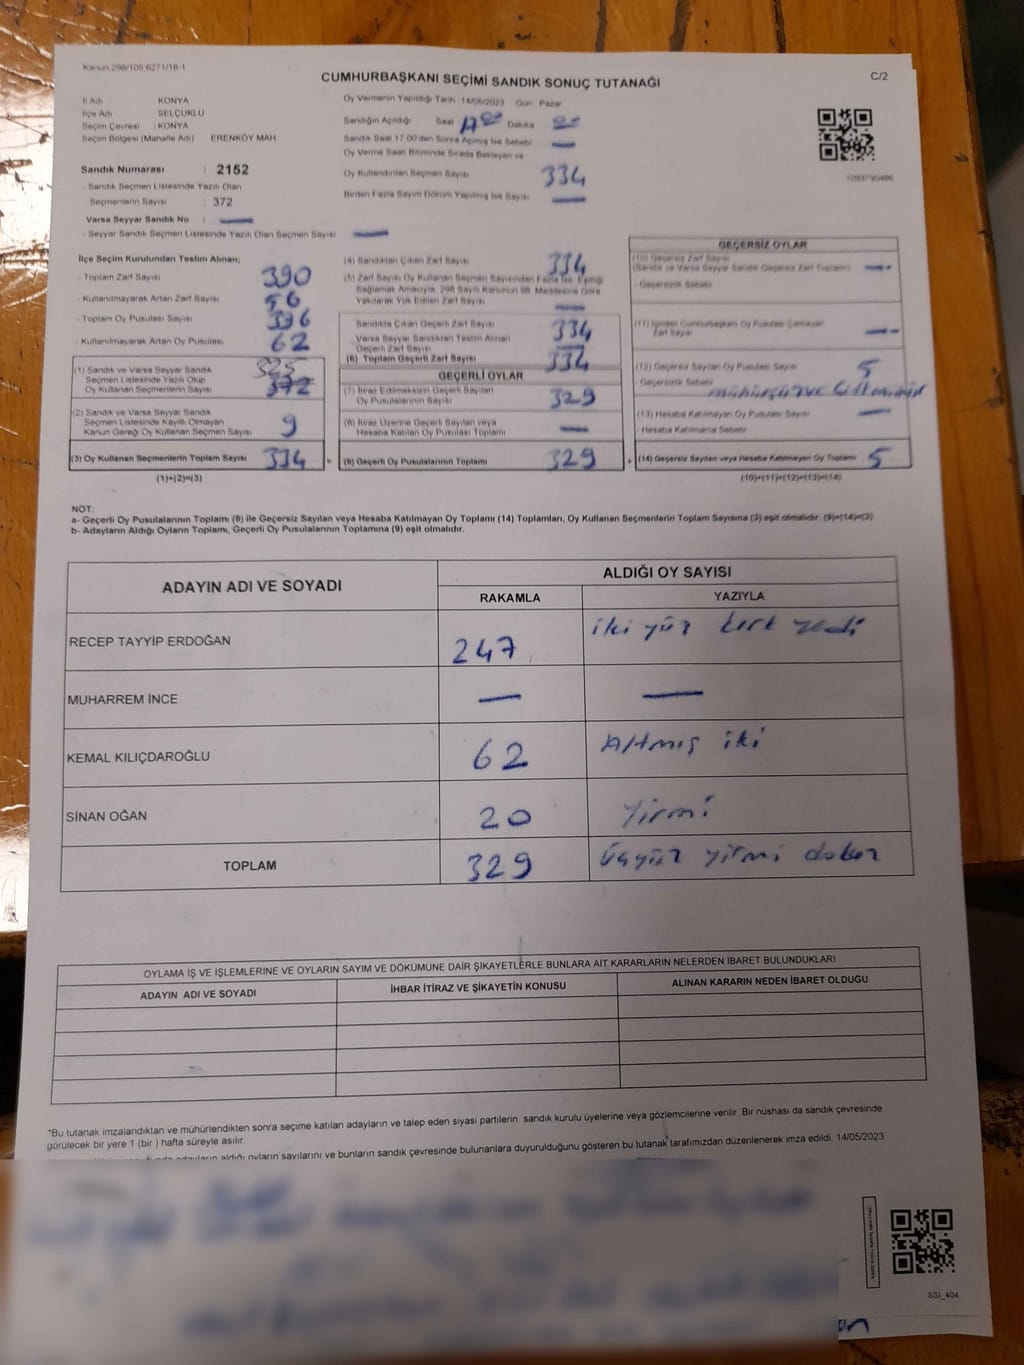 Kanun 298/105 6271/18-1
CUMHURBAŞKANI SEÇİMİ SANDIK SONUÇ TUTANAĞI
C/2
İl Adı KONYA
İlçe Adı SELÇUKLU
Seçim Çevresi : KONYA
Seçim Bölgesi (Mahalle Adı) ERENKÖY MAH
Sandık Numarası : 2152
- Sandık Seçmen Listesinde Yazılı Olan
Seçmenlerin Sayısı : 372
Varsa Seyyar Sandık No : —
- Seyyar Sandık Seçmen Listesinde Yazılı Olan Seçmen Sayısı —
Oy Vermenin Yapıldığı Tarih :14/05/2023 Gün Pazar
Sandığın Açıldığı Saat 17 00 Dakika
Sandık Saat 17.00'den Sonra Açılmış İse Sebebi —
Oy Verme Saati Bitiminde Sırada Bekleyen ve
Oy Kullandırılan Seçmen Sayısı 334
Birden Fazla Sayım Döküm Yapılmış İse Sayısı —
1093790486
İlçe Seçim Kurulundan Teslim Alınan;
- Toplam Zarf Sayısı 390
- Kullanılmayarak Artan Zarf Sayısı 56
- Toplam Oy Pusulası Sayısı 396
- Kullanılmayarak Artan Oy Pusulası 62
(1) Sandık ve Varsa Seyyar Sandık
Seçmen Listesinde Yazılı Olup
Oy Kullanan Seçmenlerin Sayısı 325 372
(2) Sandık ve Varsa Seyyar Sandık
Seçmen Listesinde Kayıtlı Olmayan
Kanun Gereği Oy Kullanan Seçmen Sayısı 9
(3) Oy Kullanan Seçmenlerin Toplam Sayısı 334
(1)+(2)=(3)
(4) Sandıktan Çıkan Zarf Sayısı 334
(5) Zarf Sayısı Oy Kullanan Seçmen Sayısından Fazla İse, Eşitliği
Sağlamak Amacıyla, 298 Sayılı Kanunun 98. Maddesine Göre
Yakılarak Yok Edilen Zarf Sayısı —
Sandıkta Çıkan Geçerli Zarf Sayısı 334
Varsa Seyyar Sandıktan Teslim Alınan
Geçerli Zarf Sayısı —
(6) Toplam Geçerli Zarf Sayısı 334
GEÇERLİ OYLAR
(7) İtiraz Edilmeksizin Geçerli Sayılan
Oy Pusulalarının Sayısı 329
(8) İtiraz Üzerine Geçerli Sayılan veya
Hesaba Katılan Oy Pusulası Toplamı —
(9) Geçerli Oy Pusulalarının Toplamı 329
GEÇERSİZ OYLAR
(10) Geçersiz Zarf Sayısı
(Sandık ve Varsa Seyyar Sandık Geçersiz Zarf Toplamı) —
- Geçersizlik Sebebi
(11) İçinden Cumhurbaşkanı Oy Pusulası Çıkmayan
Zarf Sayısı —
(12) Geçersiz Sayılan Oy Pusulası Sayısı 5
- Geçersizlik Sebebi
(13) Hesaba Katılmayan Oy Pusulası Sayısı —
- Hesaba Katılmama Sebebi
(14) Geçersiz Sayılan veya Hesaba Katılmayan Oy Toplamı 5
(10)+(11)+(12)+(13)=(14)
NOT:
a- Geçerli Oy Pusulalarının Toplamı (9) ile Geçersiz Sayılan veya Hesaba Katılmayan Oy Toplamı (14) Toplamları, Oy Kullanan Seçmenlerin Toplam Sayısına (3) eşit olmalıdır. (9)+(14)=(3)
b- Adayların Aldığı Oyların Toplamı, Geçerli Oy Pusulalarının Toplamına (9) eşit olmalıdır.
ADAYIN ADI VE SOYADI
ALDIĞI OY SAYISI
RAKAMLA YAZIYLA
RECEP TAYYİP ERDOĞAN 247 iki yüz kırk yedi
MUHARREM İNCE — —
KEMAL KILIÇDAROĞLU 62 Altmış iki
SİNAN OĞAN 20 Yirmi
TOPLAM 329 üçyüz yirmi dokuz
OYLAMA İŞ VE İŞLEMLERİNE VE OYLARIN SAYIM VE DÖKÜMÜNE DAİR ŞİKAYETLERLE BUNLARA AİT KARARLARIN NELERDEN İBARET BULUNDUKLARI
ADAYIN ADI VE SOYADI İHBAR İTİRAZ VE ŞİKAYETİN KONUSU ALINAN KARARIN NEDEN İBARET OLDUĞU
*Bu tutanak imzalandıktan ve mühürlendikten sonra seçime katılan adayların ve talep eden siyasi partilerin sandık kurulu üyelerine veya gözlemcilerine verilir. Bir nüshası da sandık çevresinde
görülecek bir yere 1 (bir ) hafta süreyle asılır.
adayların aldığı oyların sayılarını ve bunların sandık çevresinde bulunanlara duyurulduğunu gösteren bu tutanak tarafımızdan düzenlenerek imza edildi. 14/05/2023
SSI_404